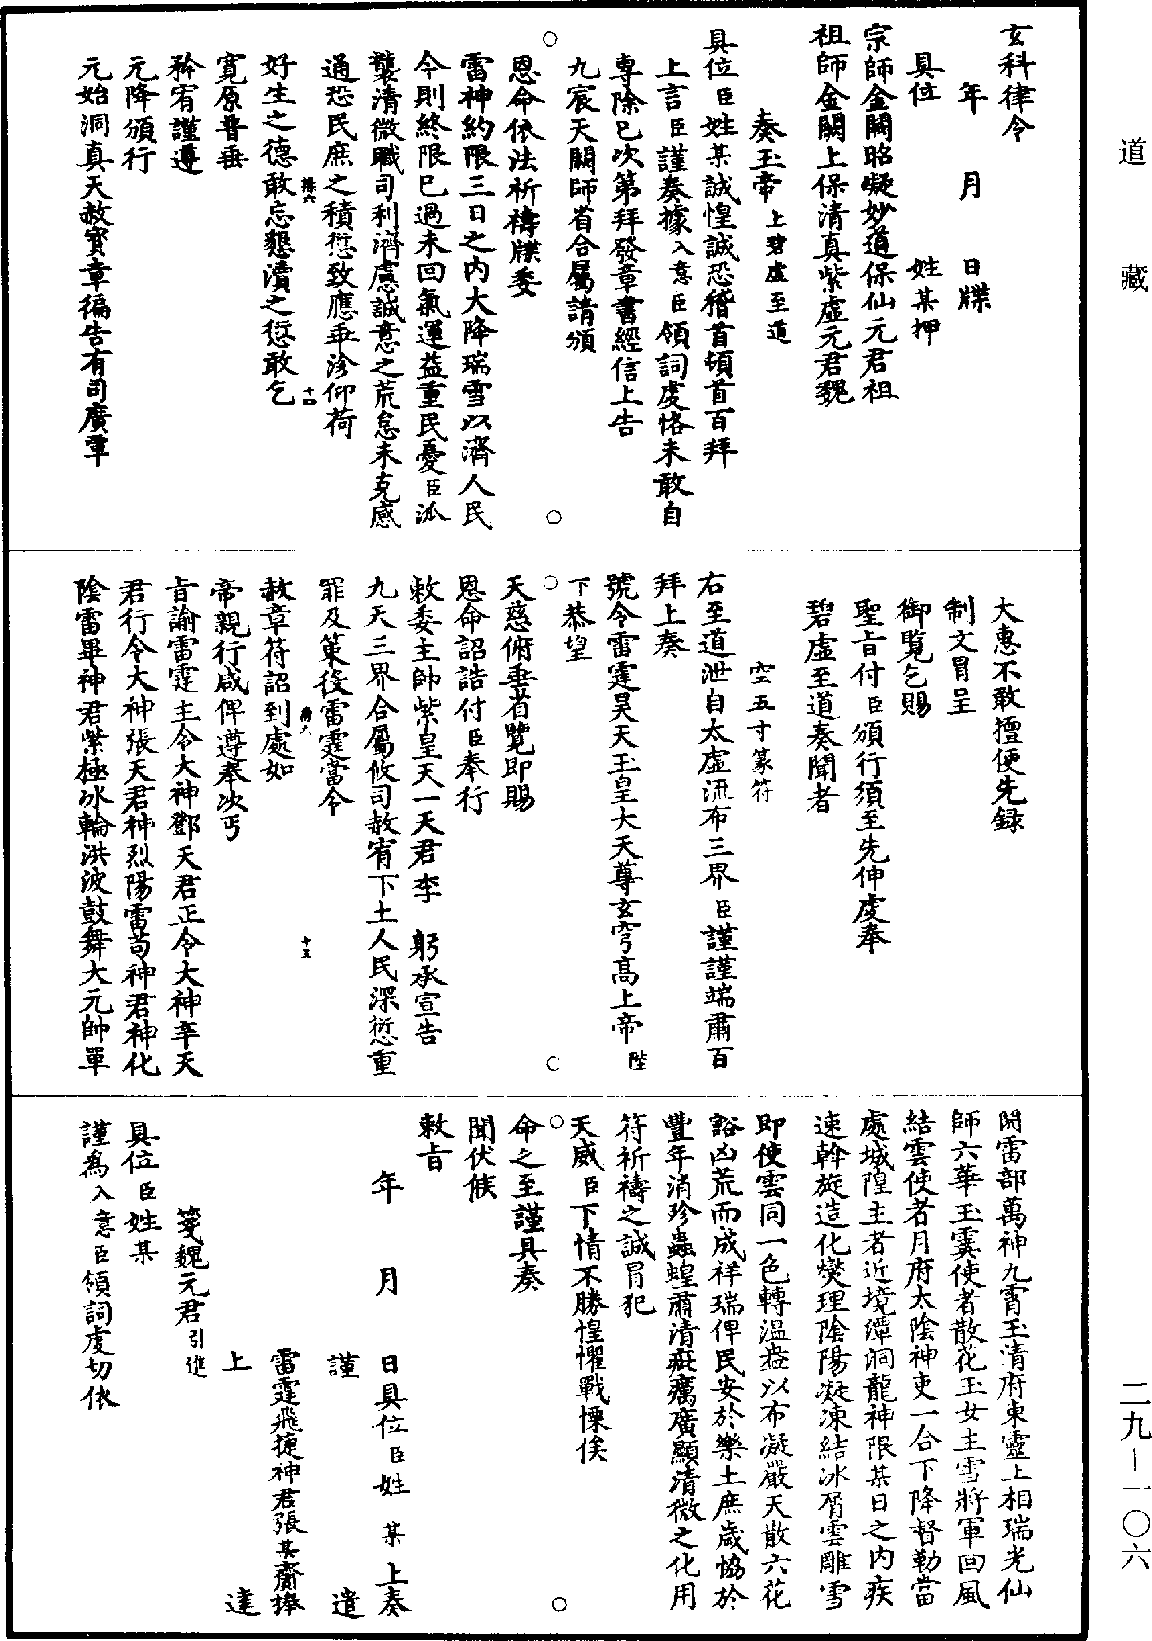 道藏
玄科律令
年 月 日牒
具位 姓某押
宗師金闕昭凝妙道保仙元君祖
祖師金闕上保清真紫虛元君魏
奏玉帝上碧虛至道
具位臣姓某誠惶誠恐稽首頓首百拜
上言臣謹奏據入意臣領詞虔恪未敢自
專除已次第拜發章書經信上告
九宸天闕師省合屬請頒
恩命依法祈禱牒委
雷神約限三日之內大降瑞雪以濟人民
今則終限已過未回氣運益重民憂臣泒
襲清微職司利濟慮誠意之荒怠未克感
通恐民庶之積愆致應垂沴仰荷
好生之德敢忘懇瀆之愆敢乞
寬原普垂
矜宥謹遵
元降頒行
元始洞真天赦寶章徧告有司廣覃
大惠不敢擅便先錄
制文冒呈
御覽乞賜
聖旨付臣頒行須至先伸虔奉
碧虛至道奏聞者
空五寸篆符
右至道泄自太虛流布三界臣謹謹端肅百
拜上奏
號令雷霆昊天玉皇大天尊玄穹高上帝陛
下恭望
天慈俯垂省覽即賜
恩命詔誥付臣奉行
敕委主帥紫皇天一天君李 躬承宣告
九天三界合屬攸司赦宥下土人民深愆重
罪及策役雷霆當令
赦章符詔到處如
帝親行咸俾遵奉次丐
旨諭雷霆主令大神鄧天君正令大神辛天
君行令大神張天君神烈陽雷茍神君神化
陰雷畢神君紫極冰輪洪波鼓舞大元帥單
開雷部萬神九霄玉清府東靈上相瑞光仙
師六華玉霙使者散花玉女主雪將軍回風
結雲使者月府太陰神吏一合下降督勒當
處城隍主者近境潭洞龍神限某日之內疾
速斡旋造化爕理陰陽凝凍結冰屑雲雕雪
即使雲同一色轉溫盎以布凝嚴天散六花
豁凶荒而成祥瑞俾民安於樂土庶歲協於
豐年消殄蟲蝗肅清疵癘廣顯清微之化用
符祈禱之誠冒犯
天威臣下情不勝惶懼戰慄俟
命之至謹具奏
聞伏候
敕旨
年 月 日具位臣姓某上奏
謹 遣
雷霆飛捷神君張某齎捧
上 達
箋魏元君引進
具位臣姓某
謹為入意臣領詞虔切依
二九—一〇六